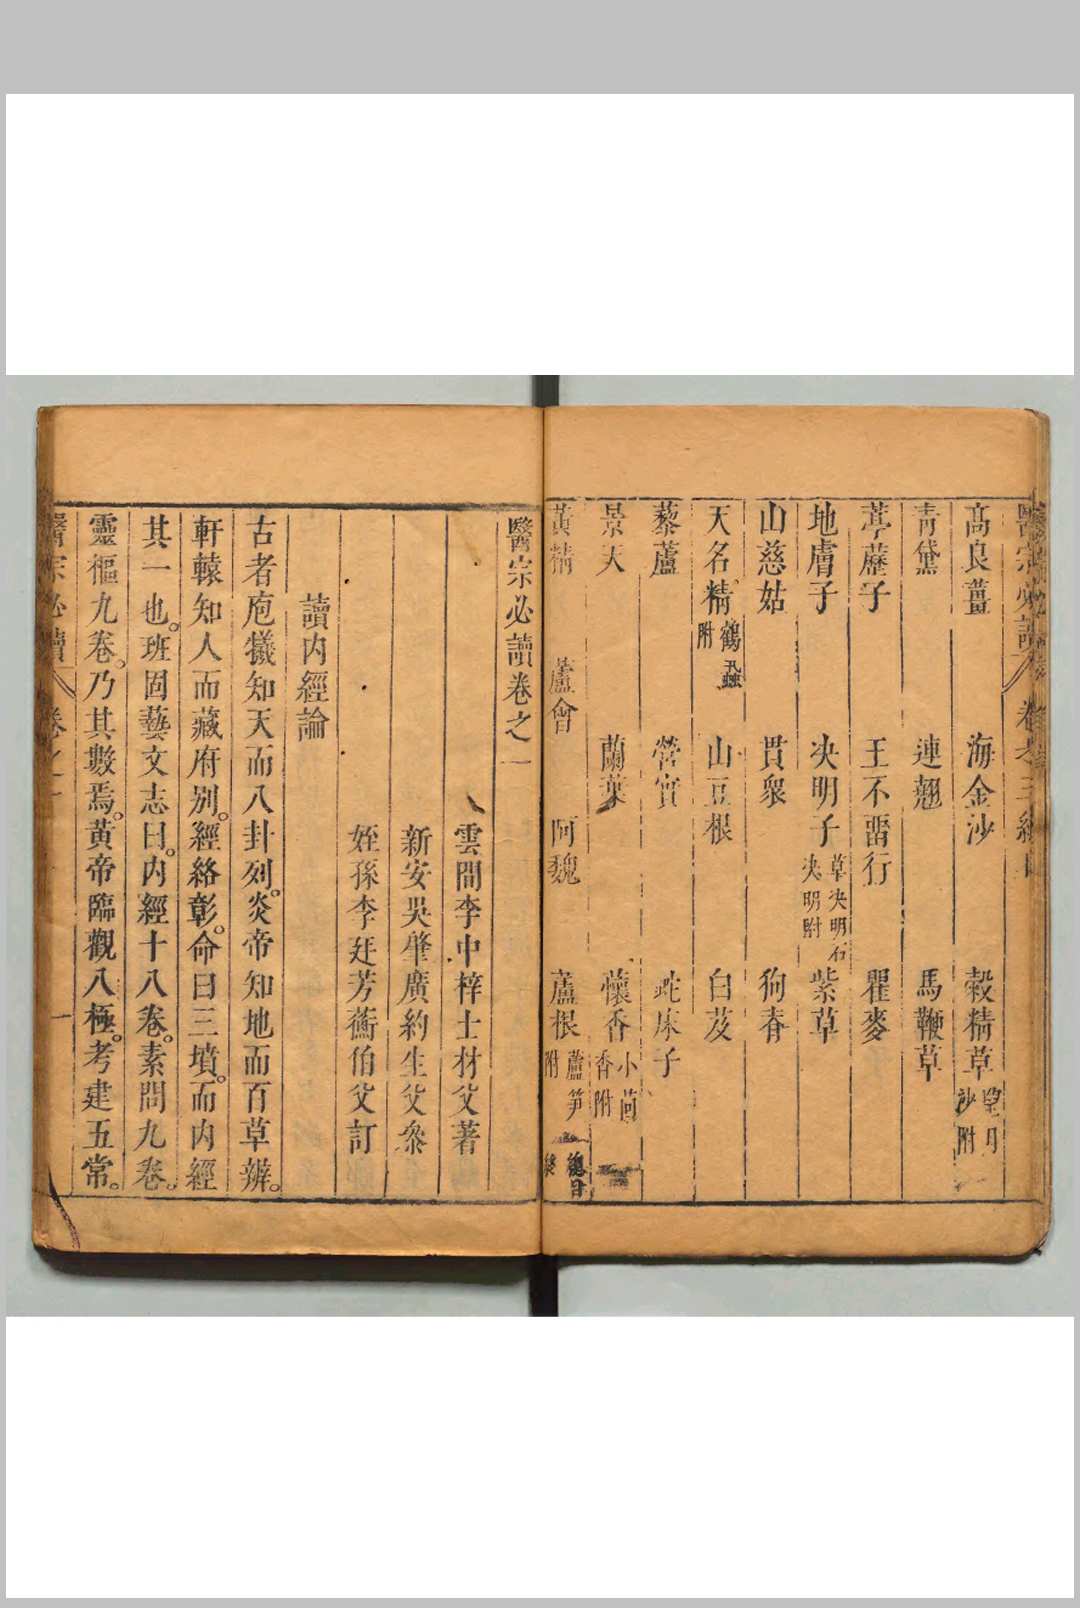 高良薑 海金沙 穀精草 望月沙附
青黛 連翹 馬鞭草
葶藶子 王不畱行 瞿麥
地膚子 决明子 草决明石决明附 紫草
山慈姑 貫衆 狗脊
天名精 鶴虱附 山豆根 白芨
藜蘆 營實 蛇床子
景天 蘭葉 懷香 小茴香附
黃精 蘆會 阿魏 蘆根 蘆笋附
總目終
醫宗必讀卷之一
雲間李中梓士材父著
新安吳肇廣約生父叅
姪孫李廷芳蘅伯父訂
讀内經論
古者庖犧知天而八卦列。炎帝知地而百草辨。
軒轅知人而藏府別。經絡彰。命曰三墳。而内經
其一也。班固藝文志曰。内經十八卷。素問九卷。
靈樞九卷。乃其數焉。黃帝臨觀八極。考建五常。
醫宗必讀 卷之一 一